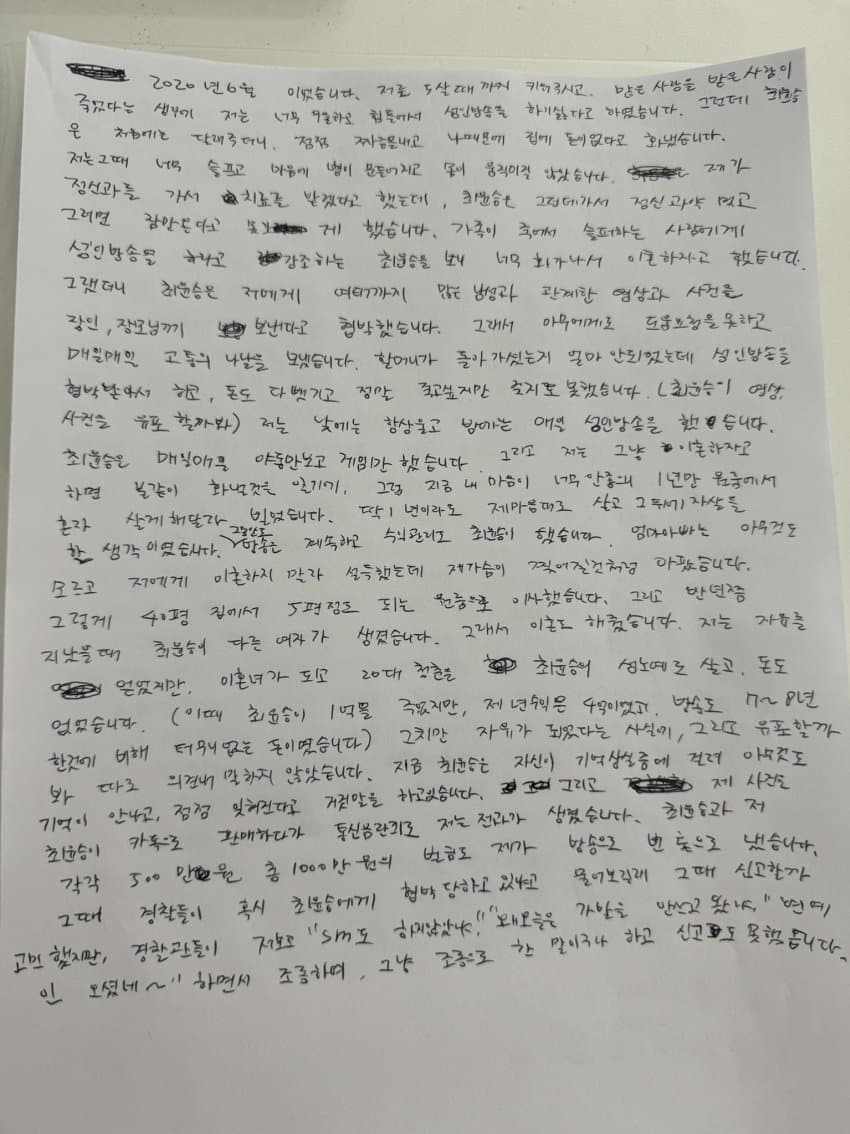 2020년 6월 이었습니다. 저를 5살때 까지 키워주시고. 많은 사랑을 받은 사람이
죽었다는 생각에 저는 너무 우울하고 힘들어서 성인방송을 하기싫다고 하였습니다. 그런데 최윤승
은 처음에는 달래주더니, 점점 짜증을내고 나때문에 집에 돈이없다고 화냈습니다.
저는그때 너무 슬프고 마음에 병이 문들어지고 몸이 움직이질 않았습니다. 제가
정신과를 가서 치료를 받겠다고 했는데, 최윤승은 그런데가서 정신과약 먹고
그러면 잠만온다고 못 게 했습니다. 가족이 죽어서 슬퍼하는 사람에게
성인방송을 하라고 강조하는 최윤승을 보니 너무 화가나서 이혼하자고 했습니다.
그랬더니 최윤승은 저에게 여태까지 많은 남성과 관계한 영상과 사진을
장인, 장모님께 보낸다고 협박했습니다. 그래서 아무에게로 도움요청을 못하고
매일매일 고통의 나날을 보냈습니다. 할머니가 돌아가셧는지 얼마 안되었는데 성인방송을
협박받아서 하고, 돈도 다 뺏기고 정말 죽고싶지만 죽지도 못했습니다. (최윤승이 영상,
사진을 유포할까봐) 저는 낮에는 항상울고 밤에는 매일 성인방송을 했습니다.
최윤승은 매일매일 야동만보고 게임만 했습니다. 그리고 저는 그냥 이혼하자고
하면 불같이 화낼것을 알기에, 그럼 지금 내 마음이 너무 안좋으니 1년만 원룸에서
혼자 살게해달라 빌었습니다. 딱 1년이라도 제마음대로 살고 그뒤에 자살을
할 생각이였습니다. 방송은 계속하고 수익관리도 최윤승이 했습니다. 엄마아빠는 아무것도
모르고 저에게 이혼하지 말라 설득했는데 제가슴이 찢어질것처럼 아팠습니다.
그렇게 40평 집에서 5평정도 되는 원룸으로 이사했습니다. 그리고 반년쯤
지났을때 최윤승이 다른 여자가 생겼습니다. 그래서 이혼도 해줬습니다. 저는 자유를
얻었지만, 이혼녀가 되고 20대 청춘을 최윤승의 성노예로 살고, 돈도
없었습니다. (이때 최윤승이 1억을 주었지만, 제 년수익은 4억이었고, 방송도 7~8년
한것에 비해 터무니없는 돈이였습니다) 그치만 자유가 되었다는 사실에, 그리고 유포할까
봐 따로 의견내 말하지 않았습니다. 지금 최윤승은 자신이 기억상실증에 걸려 아무것도
기억이 안나고, 점점 잊혀진다고 거짓말을 하고있습니다. 그리고 제 사진을
최윤승이 카톡으로 판매하다가 통신음란죄로 저는 전과가 생겼습니다. 최윤승과 저
각각 500만원 총 1000만원의 벌금도 제가 방송으로 번 돈으로 냈습니다.
그때 경찰들이 혹시 최윤승에게 협박 당하고 있냐고 물어보길래 그때 신고할까
고민 했지만, 경찰관들이 저보고 "sm도 하지않았냐" "왜오늘은 가발을 안쓰고 왔냐." "연예
인 오셨네~" 하면서 조롱하여, 그냥 조롱으로 한 말이구나 하고 신고도 못했습니다.